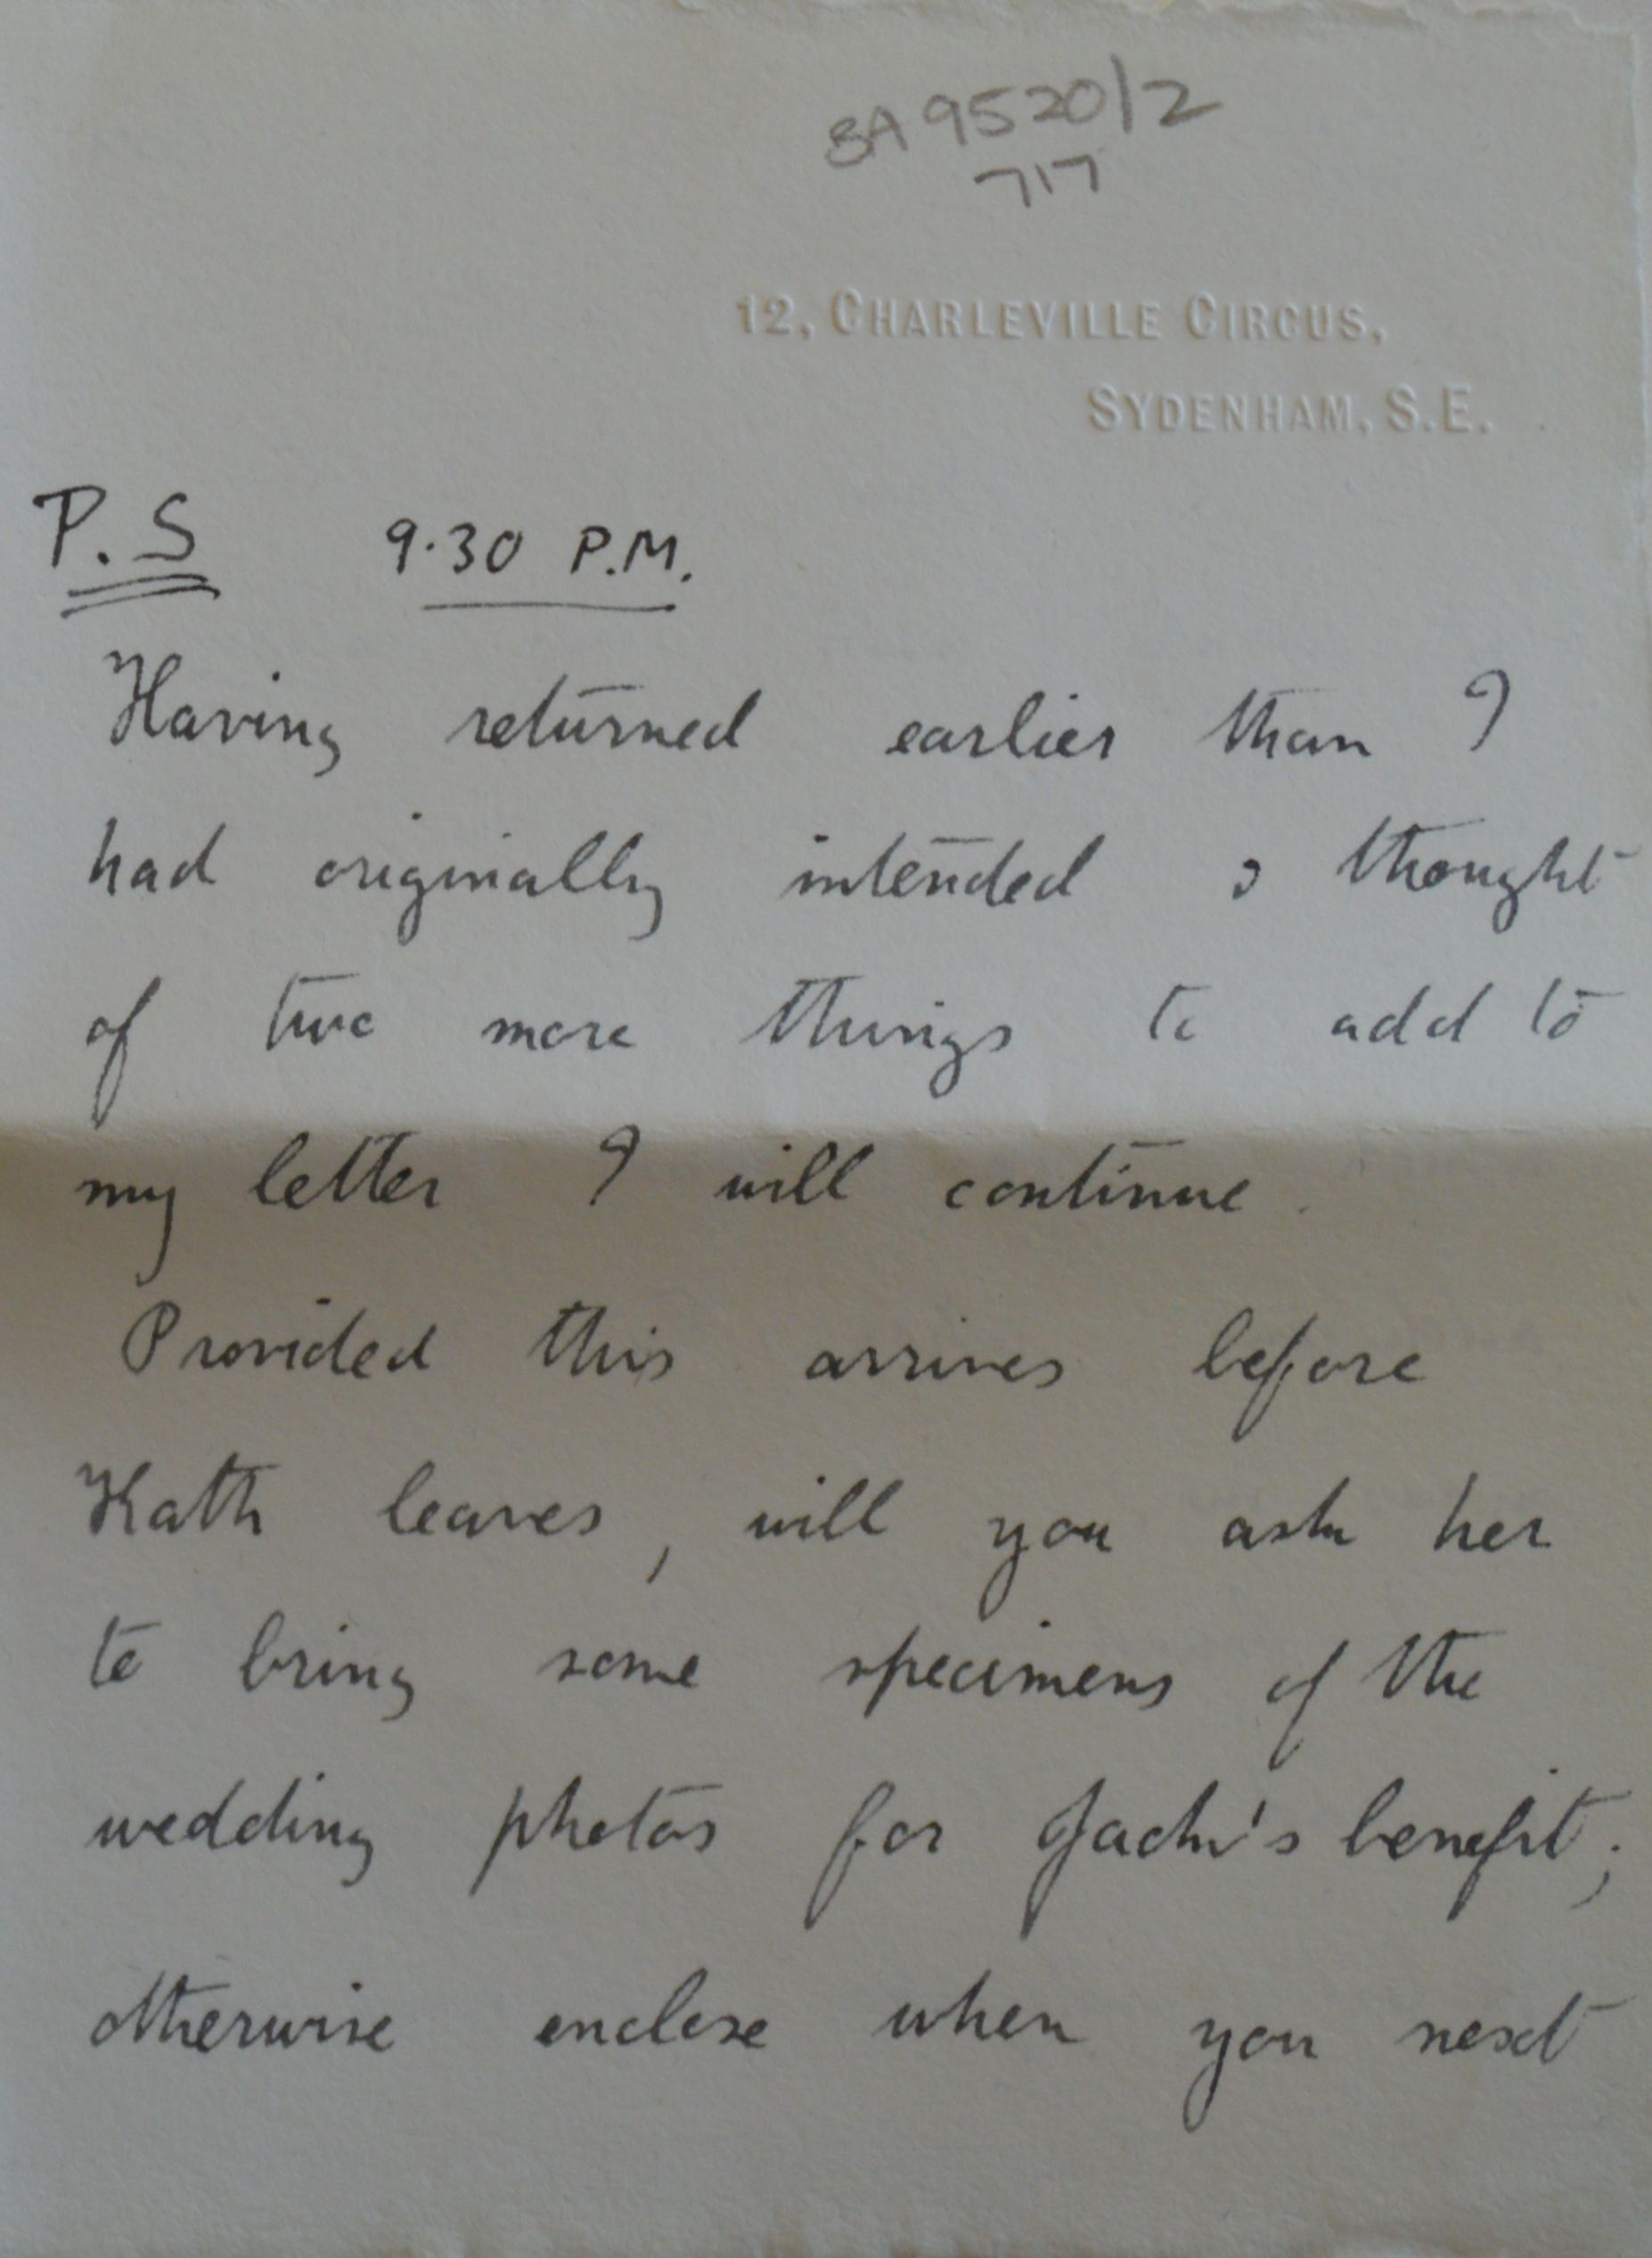 BA 9520/2
717
12, CHARLEVILLE CIRCUS,
SYDENHAM, S.E.
P.S 9.30 P.M.
Having returned earlier than I
had originally intended & thought
of two more things to add to
my letter I will continue.
Provided this arrives before
Kath leaves, will you ask her
to bring some specimens of the
wedding photos for Jack's benefit;
otherwise enclose when you next